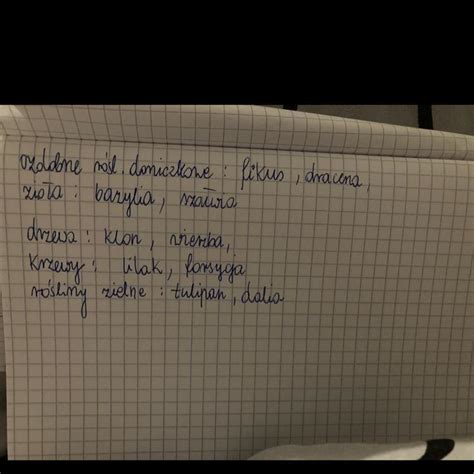 ozdobne rośl. doniczkowe : fikus , dracena ,
zioła : bazylia , szałwia
drzewa : klon , wierzba ,
krzewy : lilak , forsycja
rośliny zielne : tulipan , dalia